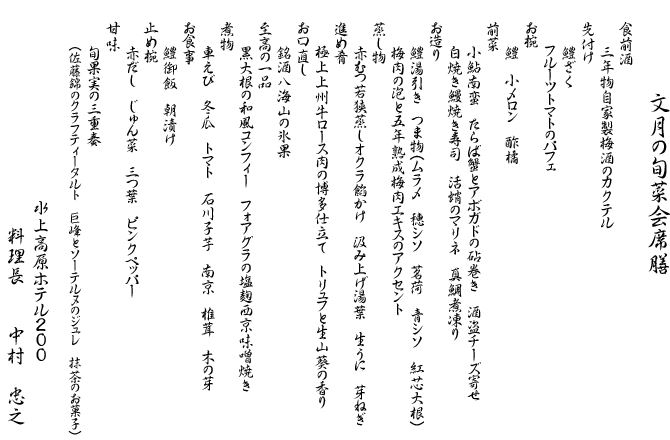 文月の旬菜会席膳
食前酒
三年物自家製梅酒のカクテル
先付け
鱧ざく
フルーツトマトのパフェ
お椀
鱧 小メロン 酢橘
前菜
小鮎南蛮 たらば蟹とアボガドの砧巻き 酒盗チーズ寄せ
白焼き鰻焼き寿司 活蛸のマリネ 真鯛煮凍り
お造り
鱧湯引き つま物(ムラメ 穂シソ 茗荷 青シソ 紅芯大根)
梅肉の泡と五年熟成梅肉エキスのアクセント
蒸し物
赤むつ若狭蒸しオクラ餡かけ 汲み上げ湯葉 生うに 芽ねぎ
進め肴
極上上州牛ロース肉の博多仕立て トリュフと生山葵の香り
お口直し
銘酒八海山の氷果
至高の一品
黒大根の和風コンフィー フォアグラの塩麹西京味噌焼き
煮物
車えび 冬瓜 トマト 石川子芋 南京 椎茸 木の芽
お食事
鱧御飯 朝漬け
止め椀
赤だし じゅん菜 三つ葉 ピンクペッパー
甘味
旬果実の三重奏
(佐藤錦のクラフティータルト 巨峰とソーテルヌのジュレ 抹茶のお菓子)
水上高原ホテル200
料理長 中村 忠之